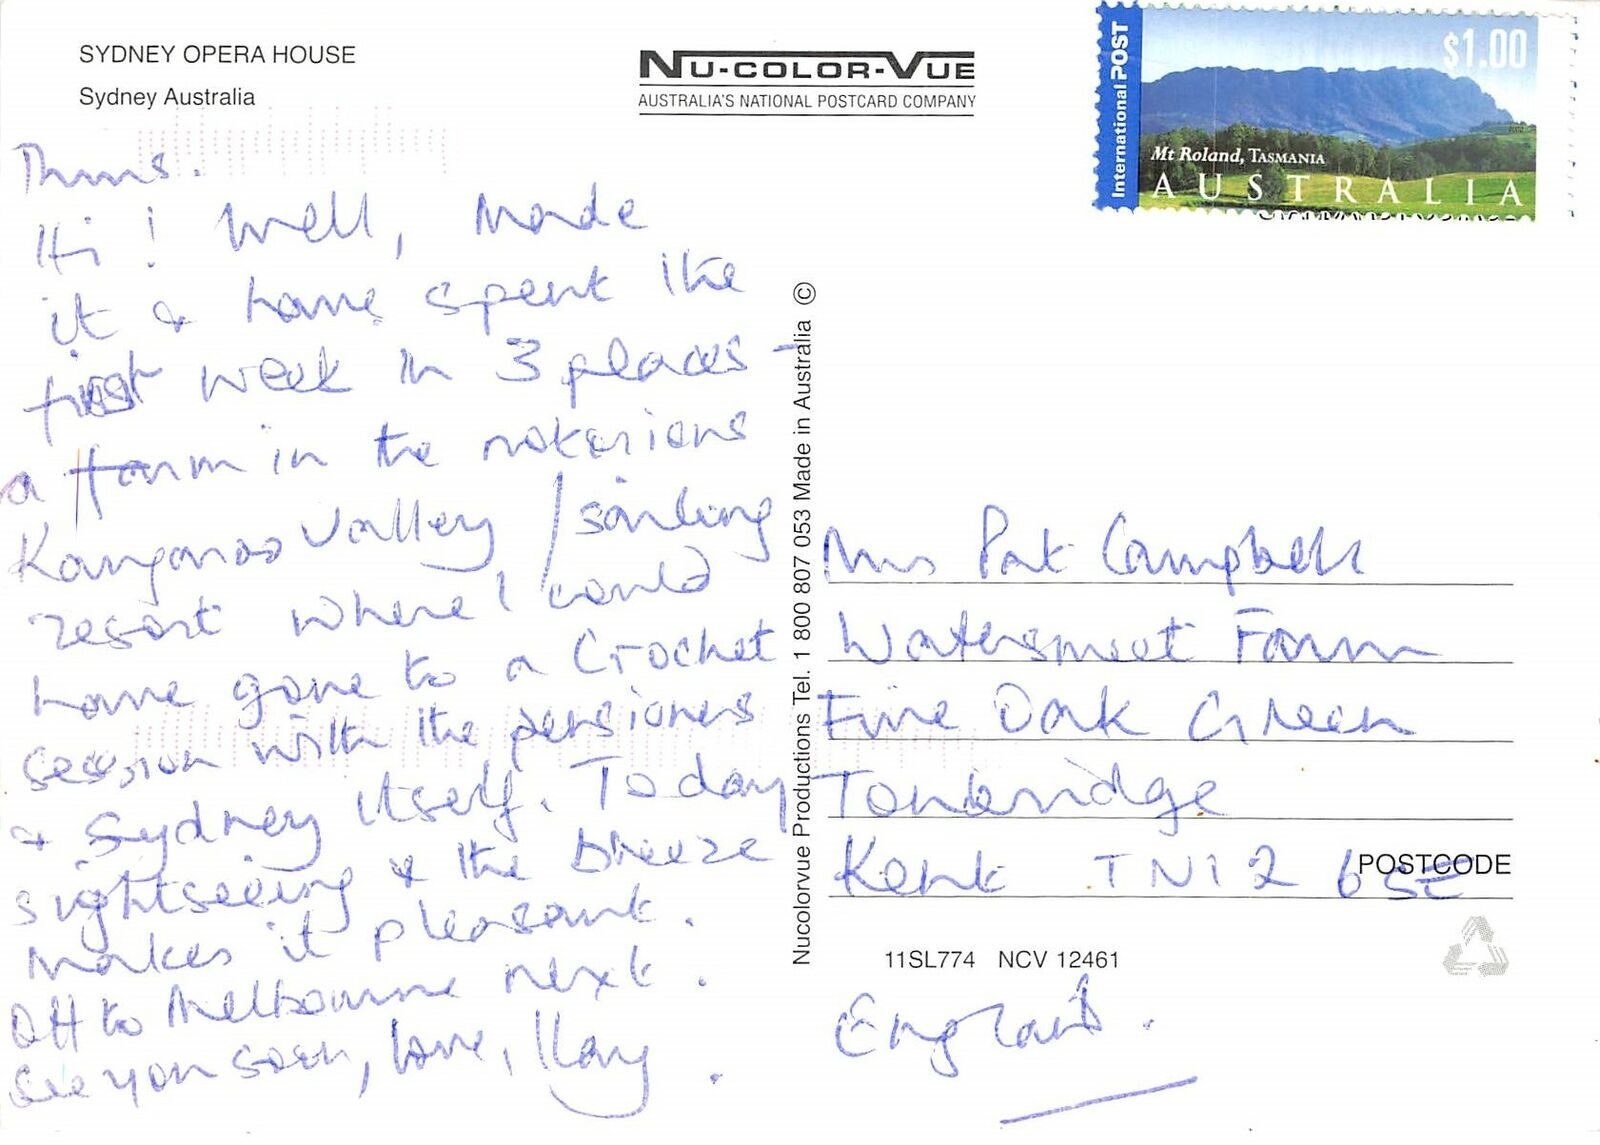 SYDNEY OPERA HOUSE
Sydney Australia
NU-COLOR-VUE
AUSTRALIA'S NATIONAL POSTCARD COMPANY
International POST
$1.00
Mt Roland, TASMANIA
AUSTRALIA
Thurs.
Hi! Well, made
it & have spent the
first week in 3 places -
a farm in the notorious
Kangaroo Valley / sailing
resort where I could
have gone to a Crochet
session with the pensioners
& Sydney itself. Today
sightseeing & the breeze
makes it pleasant.
Off to Melbourne next.
See you soon, love,
Nucolorvue Productions Tel. 1 800 807 053 Made in Australia ©
Mrs Pat Campbell
Watersmeet Farm
Five Oak Green
Tonbridge
Kent TN12 6SE
POSTCODE
11SL774 NCV 12461
England.